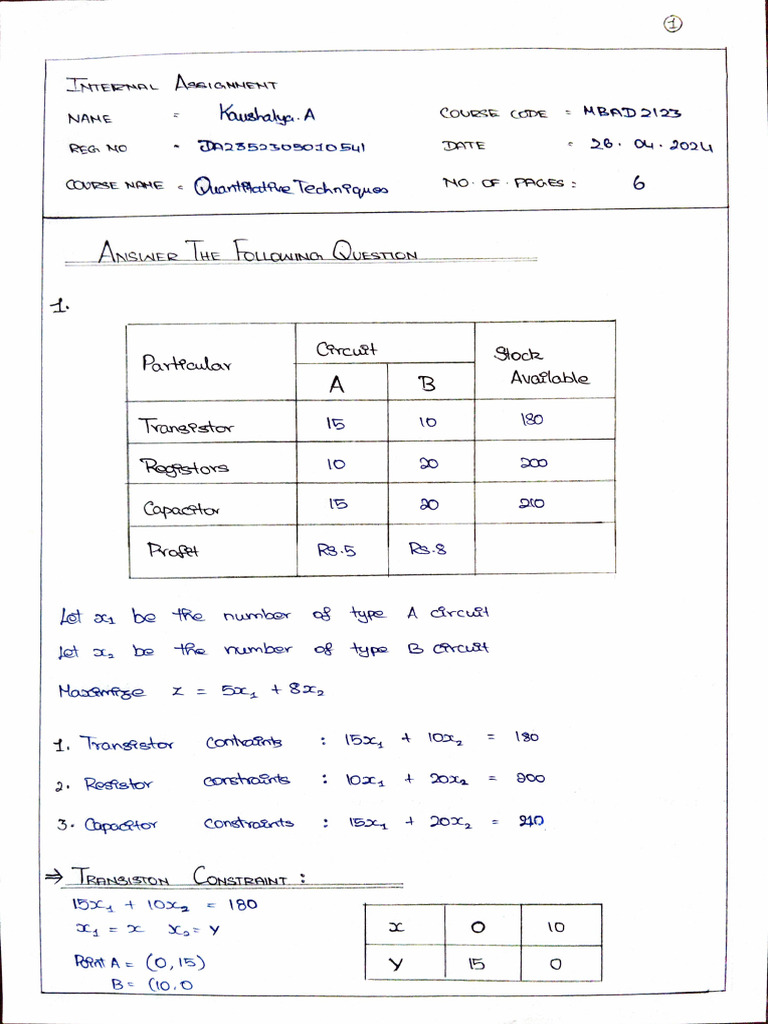 1
INTERNAL ASSIGNMENT
NAME = Kaushalya.A COURSE CODE = MBAD2123
REG NO = DA2352305010541 DATE = 26.04.2024
COURSE NAME = Quantitative Techniques NO. OF. PAGES : 6
ANSWER THE FOLLOWING QUESTION
1.
Particular Circuit Stock Available
A B
Transistor 15 10 180
Registors 10 20 200
Capacitor 15 20 210
Profit Rs.5 Rs.8
Let x1 be the number of type A circuit
Let x2 be the number of type B circuit
Maximize z = 5x1 + 8x2
1. Transistor contraints : 15x1 + 10x2 = 180
2. Resistor constraints : 10x1 + 20x2 = 200
3. Capacitor constraints : 15x1 + 20x2 = 210
⇒ TRANSISTON CONSTRAINT :
15x1 + 10x2 = 180
x1 = x x2 = y
Point A = (0,15)
B = (10,0
x 0 10
y 15 0